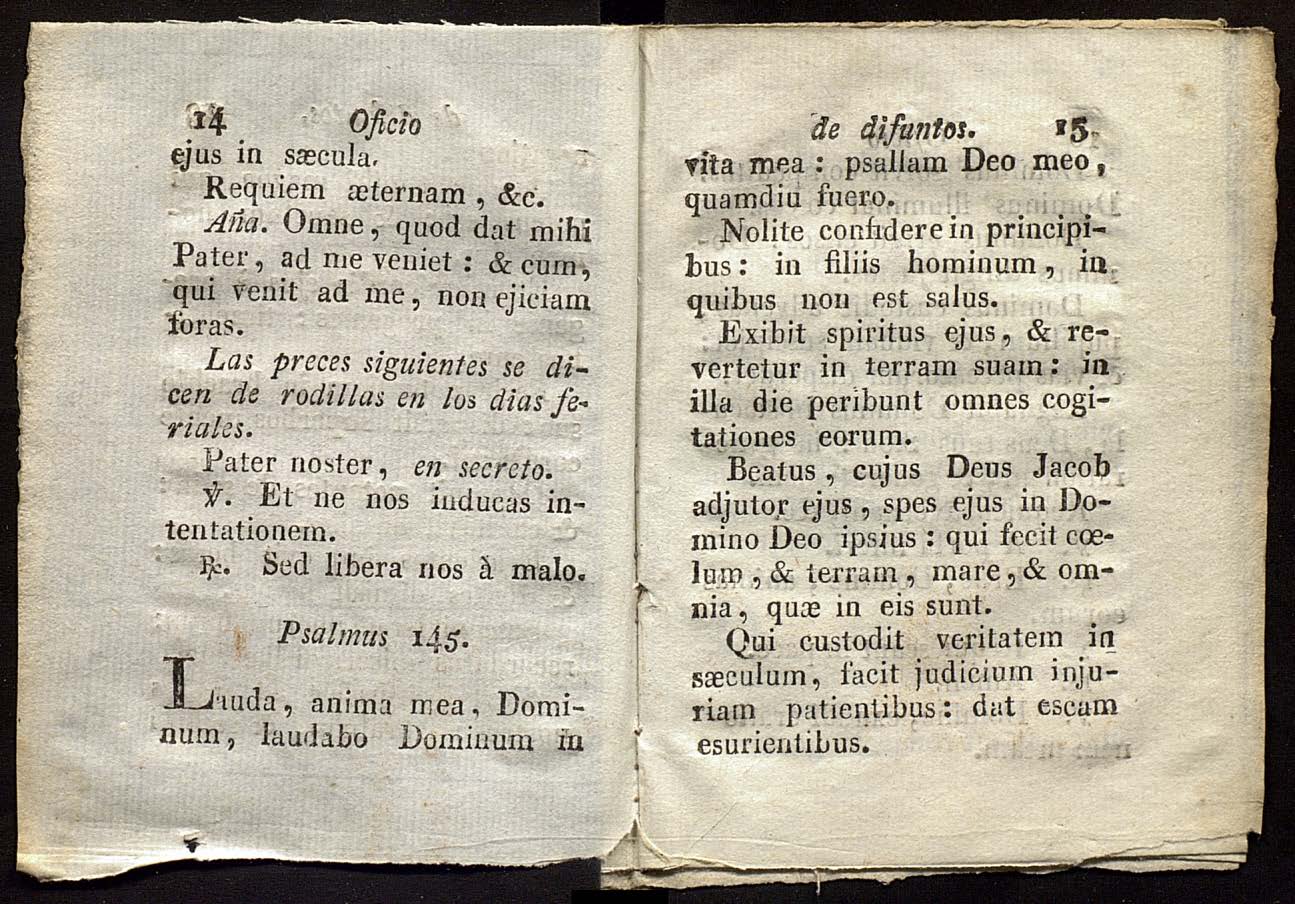 14 Oficio
ejus in sæcula.
Requiem æternam , &c.
Aña. Omne, quod dat mihi
Pater, ad me veniet : & cum,
qui venit ad me, non ejiciam
foras.
Las preces siguientes se di-
cen de rodillas en los dias fe-
riales.
Pater noster, en secreto.
℣. Et ne nos inducas in-
tentationem.
℟. Sed libera nos à malo.
Psalmus 145.
Lauda, anima mea, Domi-
num, laudabo Dominum in
de difuntos. 15
vita mea : psallam Deo meo,
quamdiu fuero.
Nolite confidere in principi-
bus : in filiis hominum, in
quibus non est salus.
Exibit spiritus ejus, & re-
vertetur in terram suam : in
illa die peribunt omnes cogi-
tationes eorum.
Beatus, cujus Deus Jacob
adjutor ejus, spes ejus in Do-
mino Deo ipsius : qui fecit cœ-
lum, & terram, mare, & om-
nia, quæ in eis sunt.
Qui custodit veritatem in
sæculum, facit judicium inju-
riam patientibus : dat escam
esurientibus.